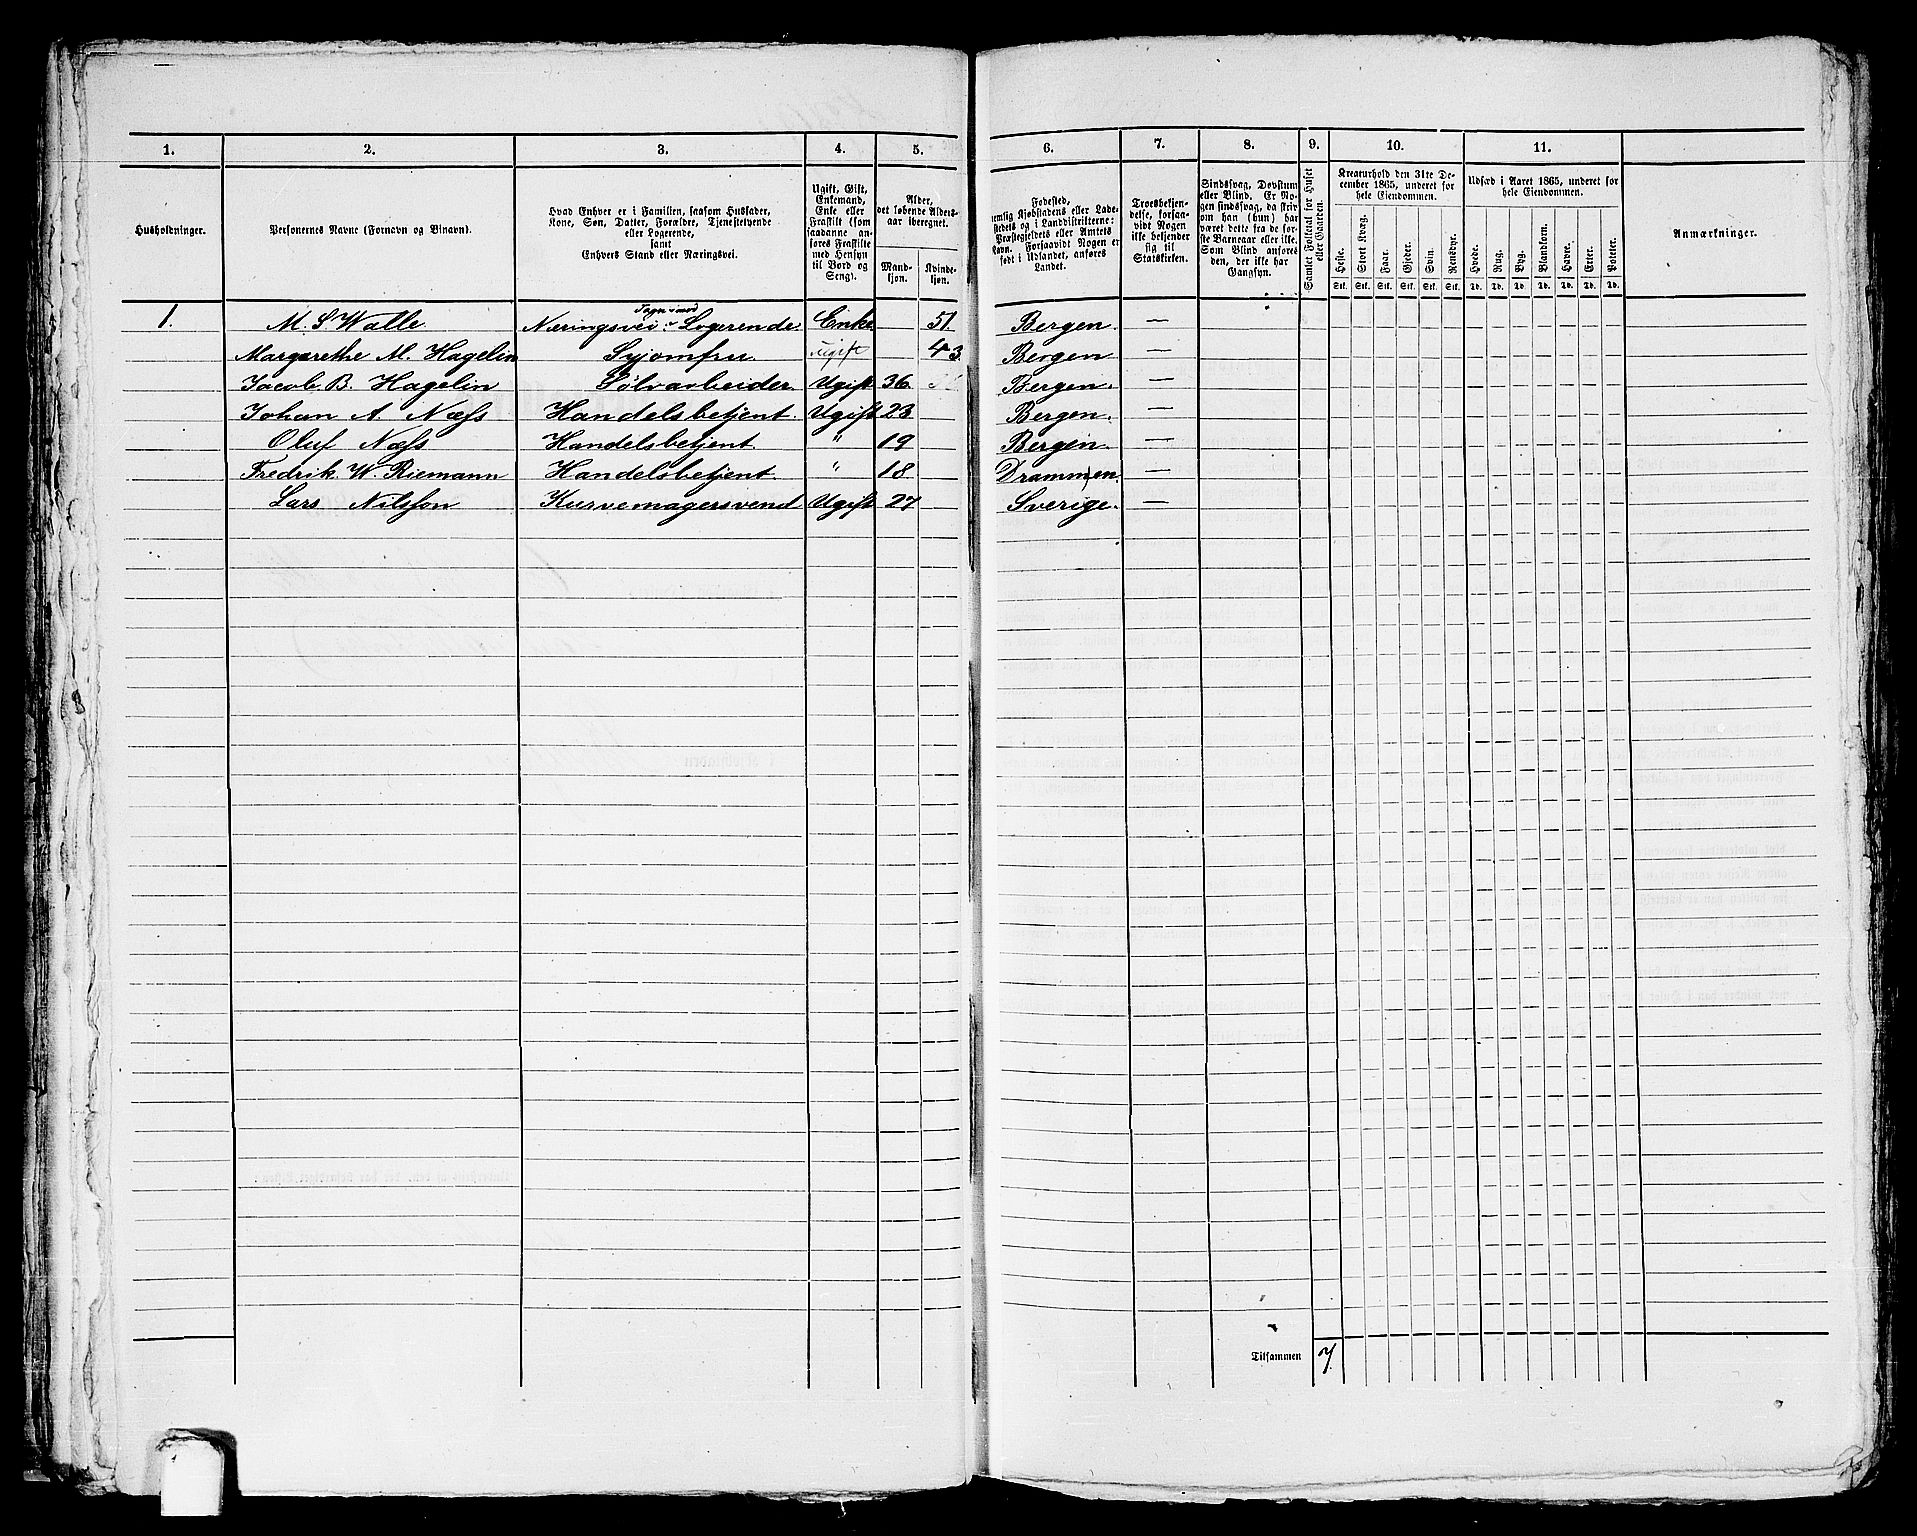 1. 2. 3. 4. 5. 6. 7. 8. 9. 10. 11.
Husholdninger.
Personernes Navne (Fornavn og Binavn).
Hvad Enhver er i Familien, saasom Husfader,
Kone, Søn, Datter, Forældre, Tjenestetyende
eller Logerende,
samt
Enhvers Stand eller Næringsvei.
Ugift, Gift,
Enkemand,
Enke eller
Fraskilt (som
saadanne an-
føres Fraskilte
med Hensyn
til Bord og
Seng).
Alder,
det løbende Alders-
aar iberegnet.
Mand-
kjøn.
Kvinde-
kjøn.
Fødested,
nemlig Kjøbstadens eller Lade-
stedets og i Landdistrikterne:
Præstegjeldets eller Amtets
Navn. Forsaavidt Nogen er
født i Udlandet, anføres
Landet.
Troesbekjen-
delse, forsaa-
vidt Nogen
ikke bekjender
sig til
Statskirken.
Sindssvag, Døvstum
eller Blind. Er No-
gen sindssvag, da skriv
om han (hun) har
været dette fra de før-
ste Barneaar eller ikke.
Som Blind anføres
den, der ikke har
Gangsyn.
Samlet Folketal for Huset
eller Gaarden.
Kreaturhold den 31te De-
cember 1865, underet for
hele Eiendommen.
Heste. Stort Kvæg. Faar. Gjeder. Svin. Rensdyr.
Stk. Stk. Stk. Stk. Stk. Stk.
Udsæd i Aaret 1865, underet for
hele Eiendommen.
Hvede. Rug. Byg. Blandkorn. Havre. Erter. Poteter.
Td. Td. Td. Td. Td. Td. Td.
Anmærkninger.
1. M. S Walle Næringsvei: Tager mod Logerende Enke 51 Bergen. —
Margarethe M. Hagelin Syjomfru. Ugift 43 Bergen —
Jacob B. Hagelin Sølvarbeider. Ugift 36 Bergen. —
Johan A. Næss Handelsbetjent. Ugift 23 Bergen. —
Oluf Næss Handelsbetjent " 19 Bergen. —
Fredrik. W. Riemann Handelsbetjent. " 18 Drammen. —
Lars Nilsson Kurvemagersvend Ugift 27 Sverige. —
Tilsammen 7